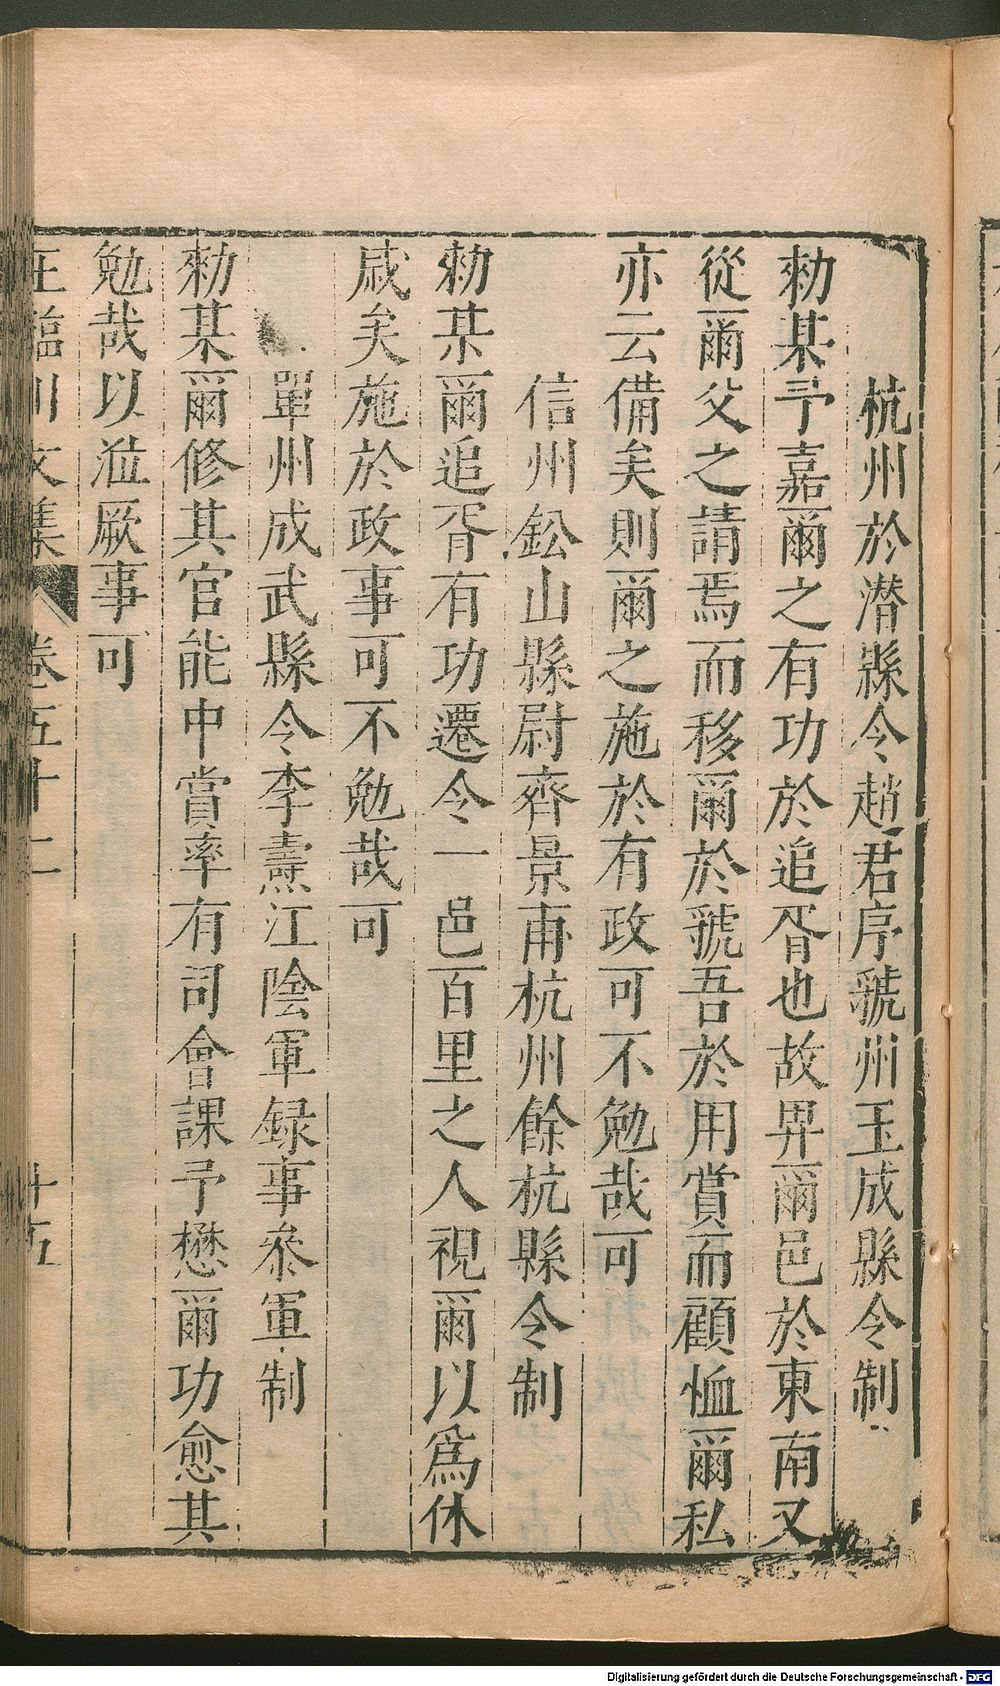 杭州於潛縣令趙君序虢州玉成縣令制
勑某予嘉爾之有功於追胥也故畀爾邑於東南又
從爾父之請焉而移爾於虢吾於用賞而顧恤爾私
亦云備矣則爾之施於有政可不勉哉可
信州鈆山縣尉齊景甫杭州餘杭縣令制
勑某爾追胥有功遷令一邑百里之人視爾以爲休
戚矣施於政事可不勉哉可
單州成武縣令李燾江陰軍録事叅軍制
勑某爾修其官能中賞率有司會課予懋爾功愈其
勉哉以涖厥事可
王臨川文集 卷五十二 十五
Digitalisierung gefördert durch die Deutsche Forschungsgemeinschaft - DFG